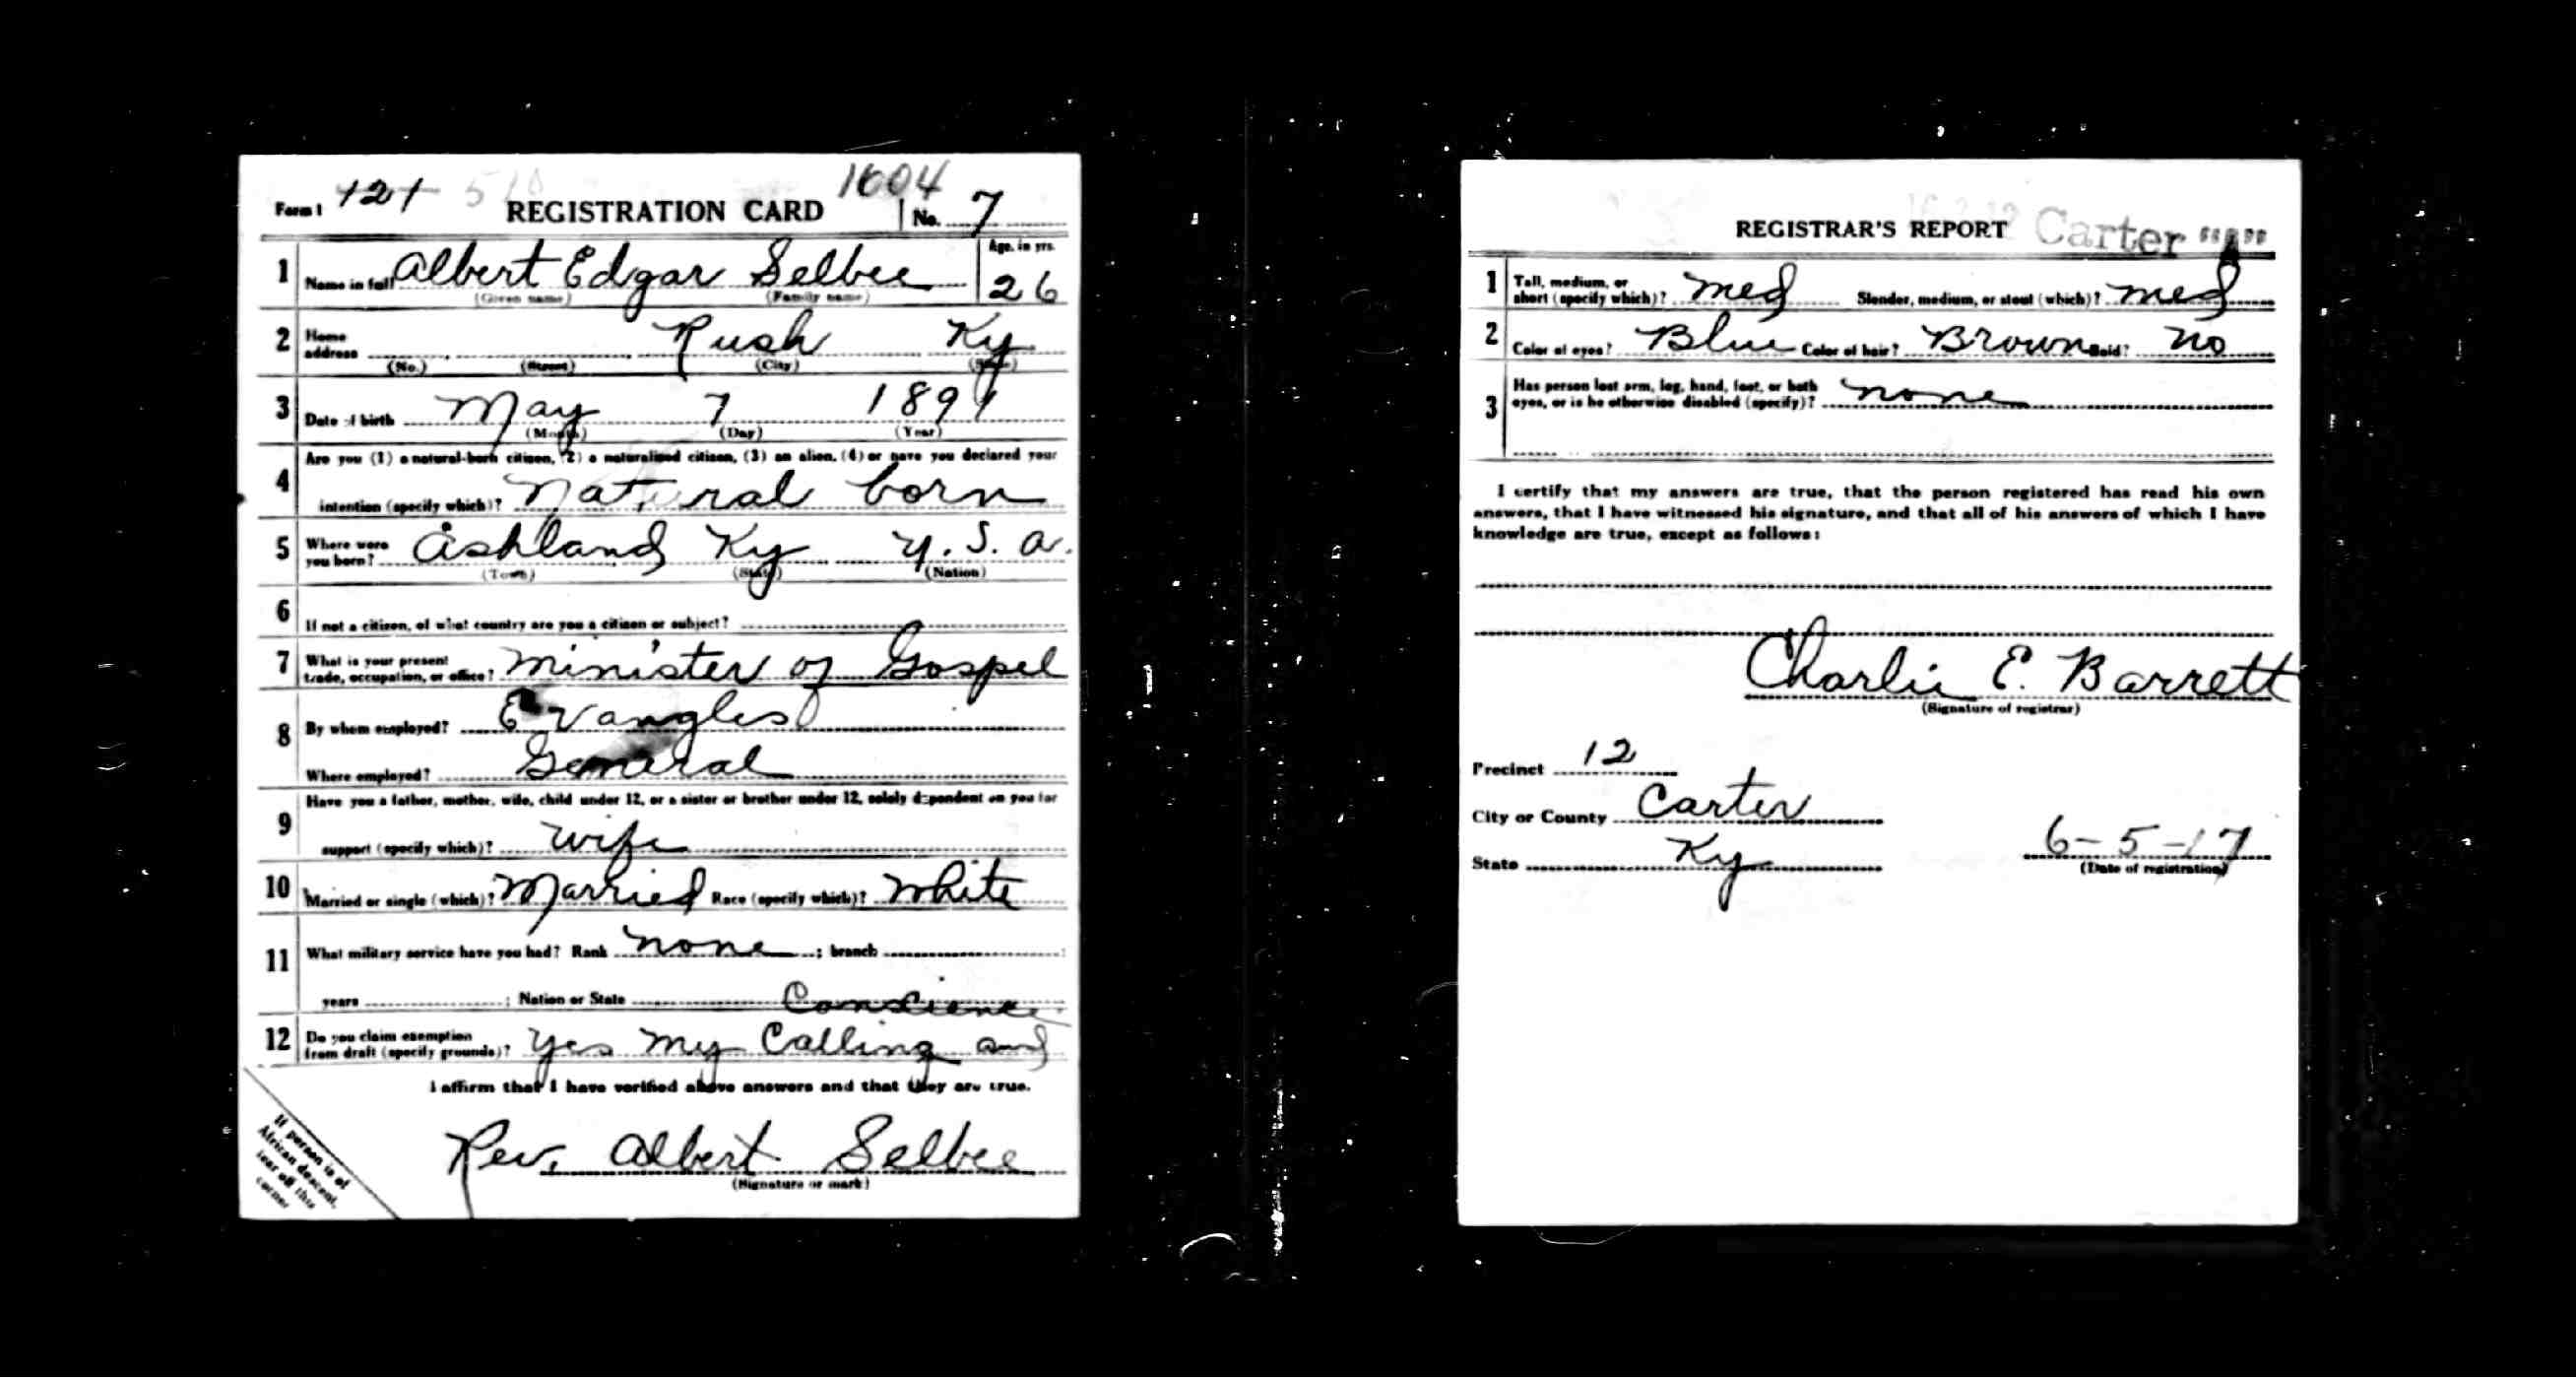 Form 1 121
REGISTRATION CARD
1604
No. 7
1 Name in full Albert Edgar Selbee Age, in yrs. 26
(Given name) (Family name)
2 Home address Rush Ky
(No.) (Street) (City) (State)
3 Date of birth May 7 1891
(Month) (Day) (Year)
4 Are you (1) a natural-born citizen, (2) a naturalized citizen, (3) an alien, (4) or have you declared your
intention (specify which)? Natural born
5 Where were you born? Ashland Ky U.S.a.
(Town) (State) (Nation)
6 If not a citizen, of what country are you a citizen or subject?
7 What is your present trade, occupation, or office? Minister of Gospel
8 By whom employed? Evanglest
Where employed? General
9 Have you a father, mother, wife, child under 12, or a sister or brother under 12, solely dependent on you for
support (specify which)? Wife
10 Married or single (which)? Married Race (specify which)? White
11 What military service have you had? Rank none ; branch
years ; Nation or State
Conscience
12 Do you claim exemption from draft (specify grounds)? Yes My Calling and
I affirm that I have verified above answers and that they are true.
Rev. Albert Selbee
(Signature or mark)
If person is of
African descent,
tear off this
corner
REGISTRAR'S REPORT Carter
1 Tall, medium, or short (specify which)? Med Slender, medium, or stout (which)? Med
2 Color of eyes? Blue Color of hair? Brown Bald? No
3 Has person lost arm, leg, hand, foot, or both
eyes, or is he otherwise disabled (specify)? None
I certify that my answers are true, that the person registered has read his own
answers, that I have witnessed his signature, and that all of his answers of which I have
knowledge are true, except as follows:
Charlie E. Barrett
(Signature of registrar)
Precinct 12
City or County Carter
State Ky
6-5-17
(Date of registration)